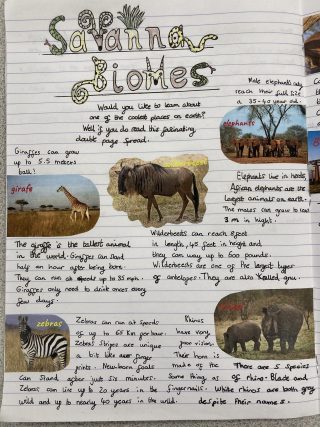 Savanna
Biomes
Would you like to learn about
one of the coolest places on earth?
Well if you do read this fascinating
double page spread.
Male elephants only
reach their full size
a 35-40 year old.
elephants
Elephants live in herds,
African elephants are the
largest animals on earth.
The males can grow to reach
3 m in hight.
Giraffes can grow
up to 5.5 meters
tall!
girafe
The giraffe is the tallest animal
in the world. Giraffes can stand
half an hour after being born.
They can run at speeds up to 35 mph.
Giraffes only need to drink once every
few days.
Wilderbeeds can reach 8 feet
in length, 4.5 feet in height and
they can way up to 600 pounds.
Wilderbeeds are one of the largest types
of antelopes. They are also called gnu.
zebras
Zebras can run at speeds
of up to 65 Km per hour.
Zebras stripes are unique
a bit like our finger
prints. Newborn foals
can stand after just six minutes.
Zebras can live up to 20 years in the
wild and up to nearly 40 years in the wild.
Rhinos
have very
poor vision.
Their horn is
made of the
same thing as
fingernails.
There are 5 species
of rhino. Black and
White rhinos are both grey
despite their names.